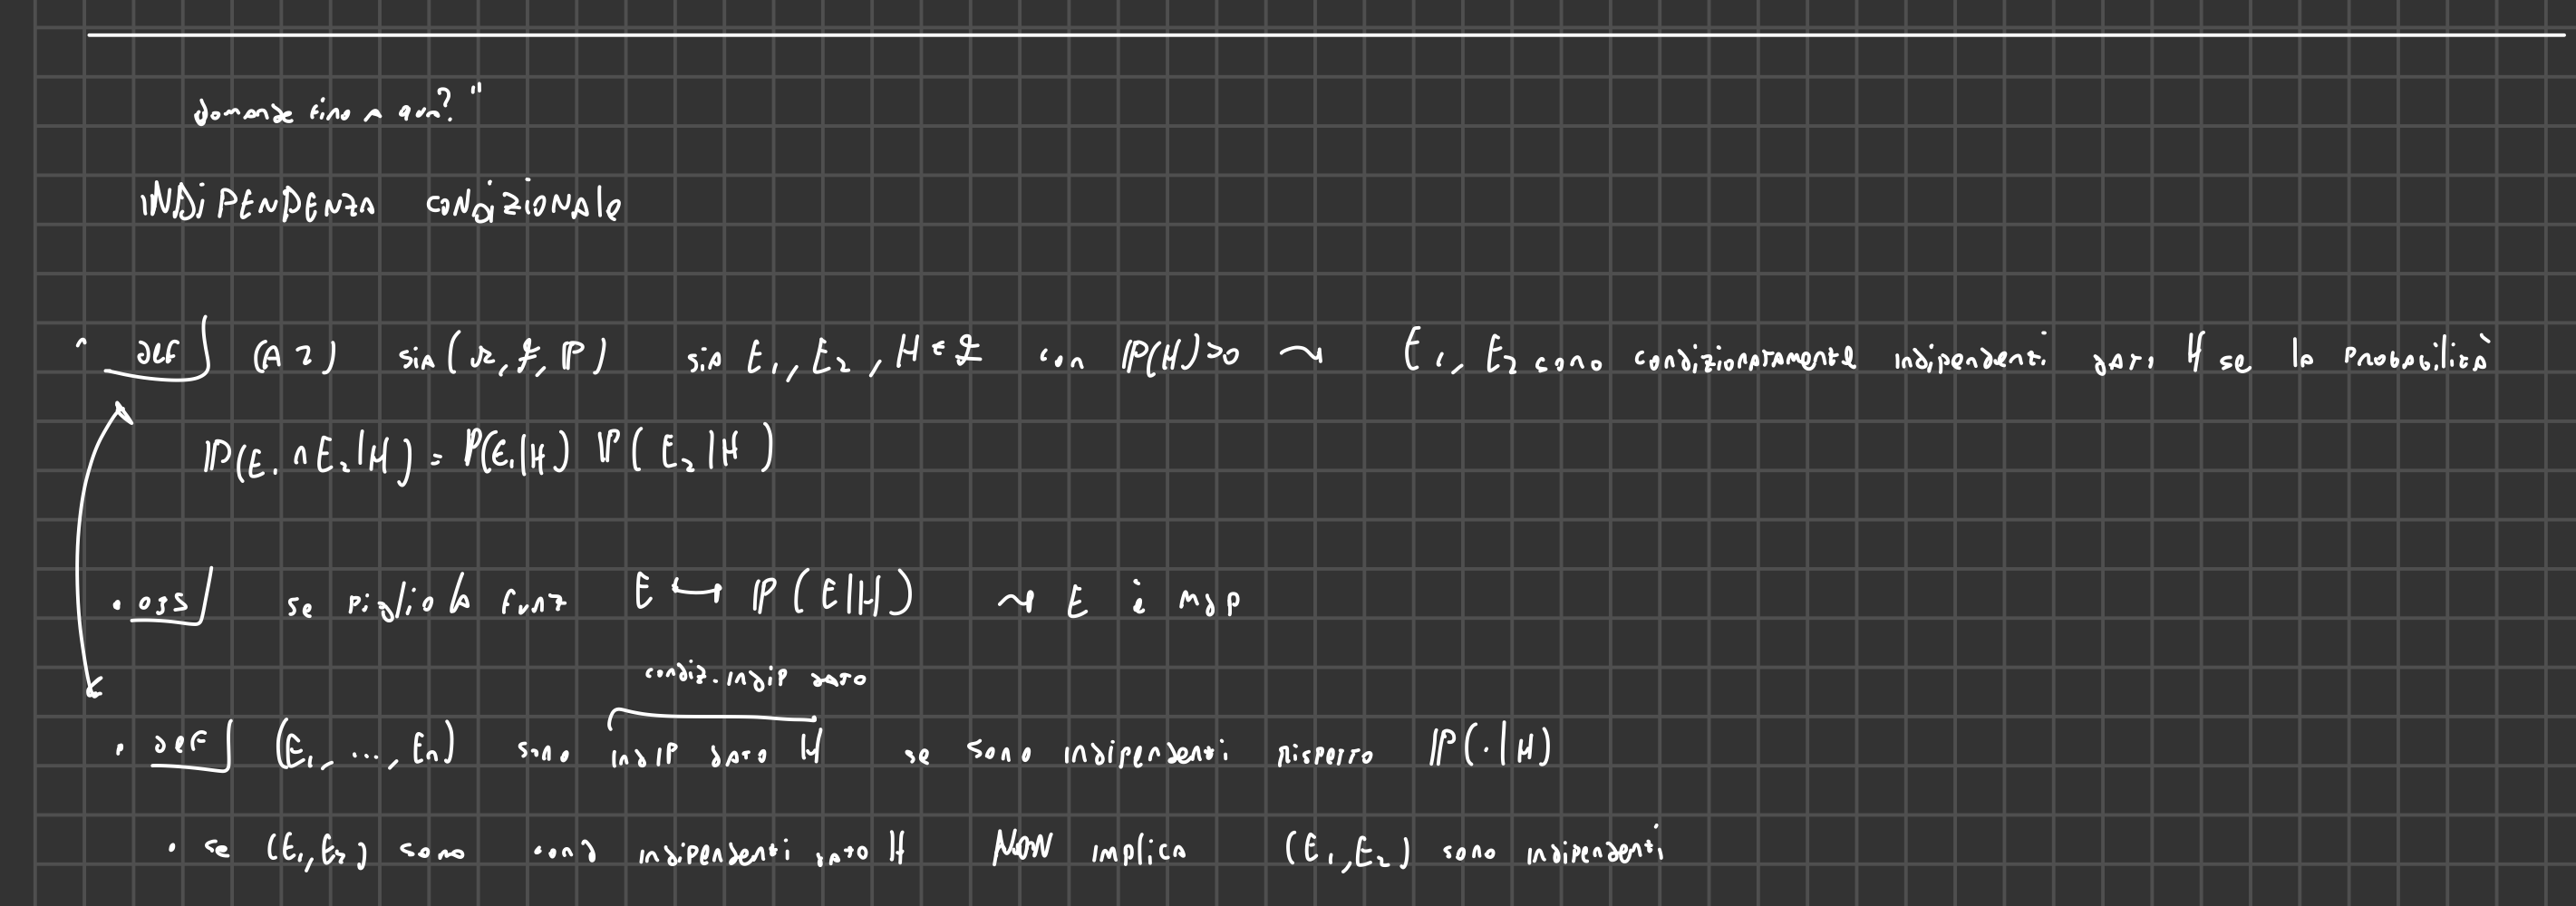 domande fino a qua? "
INDIPENDENZA CONDIZIONALE
def (A 2) sia (Ω, F, P) sia E₁, E₂, H ∈ F con P(H)>0 ⇝ E₁, E₂ sono condizionatamente indipendenti dato H se la probabilità
P(E₁ ∩ E₂ | H) = P(E₁|H) P(E₂|H)
• oss se piglio la funz E ↦ P(E|H) ⇝ E è mdp
condiz. indip dato
• def (E₁, ..., Eₙ) sono indip dato H se sono indipendenti rispetto P(·|H)
• se (E₁, E₂) sono cond indipendenti dato H NON implica (E₁, E₂) sono indipendenti